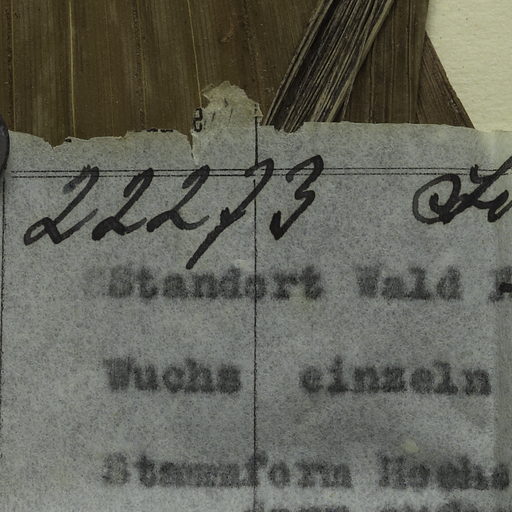 22273
Standort Wald
Wuchs einzeln
Stammform Hochs